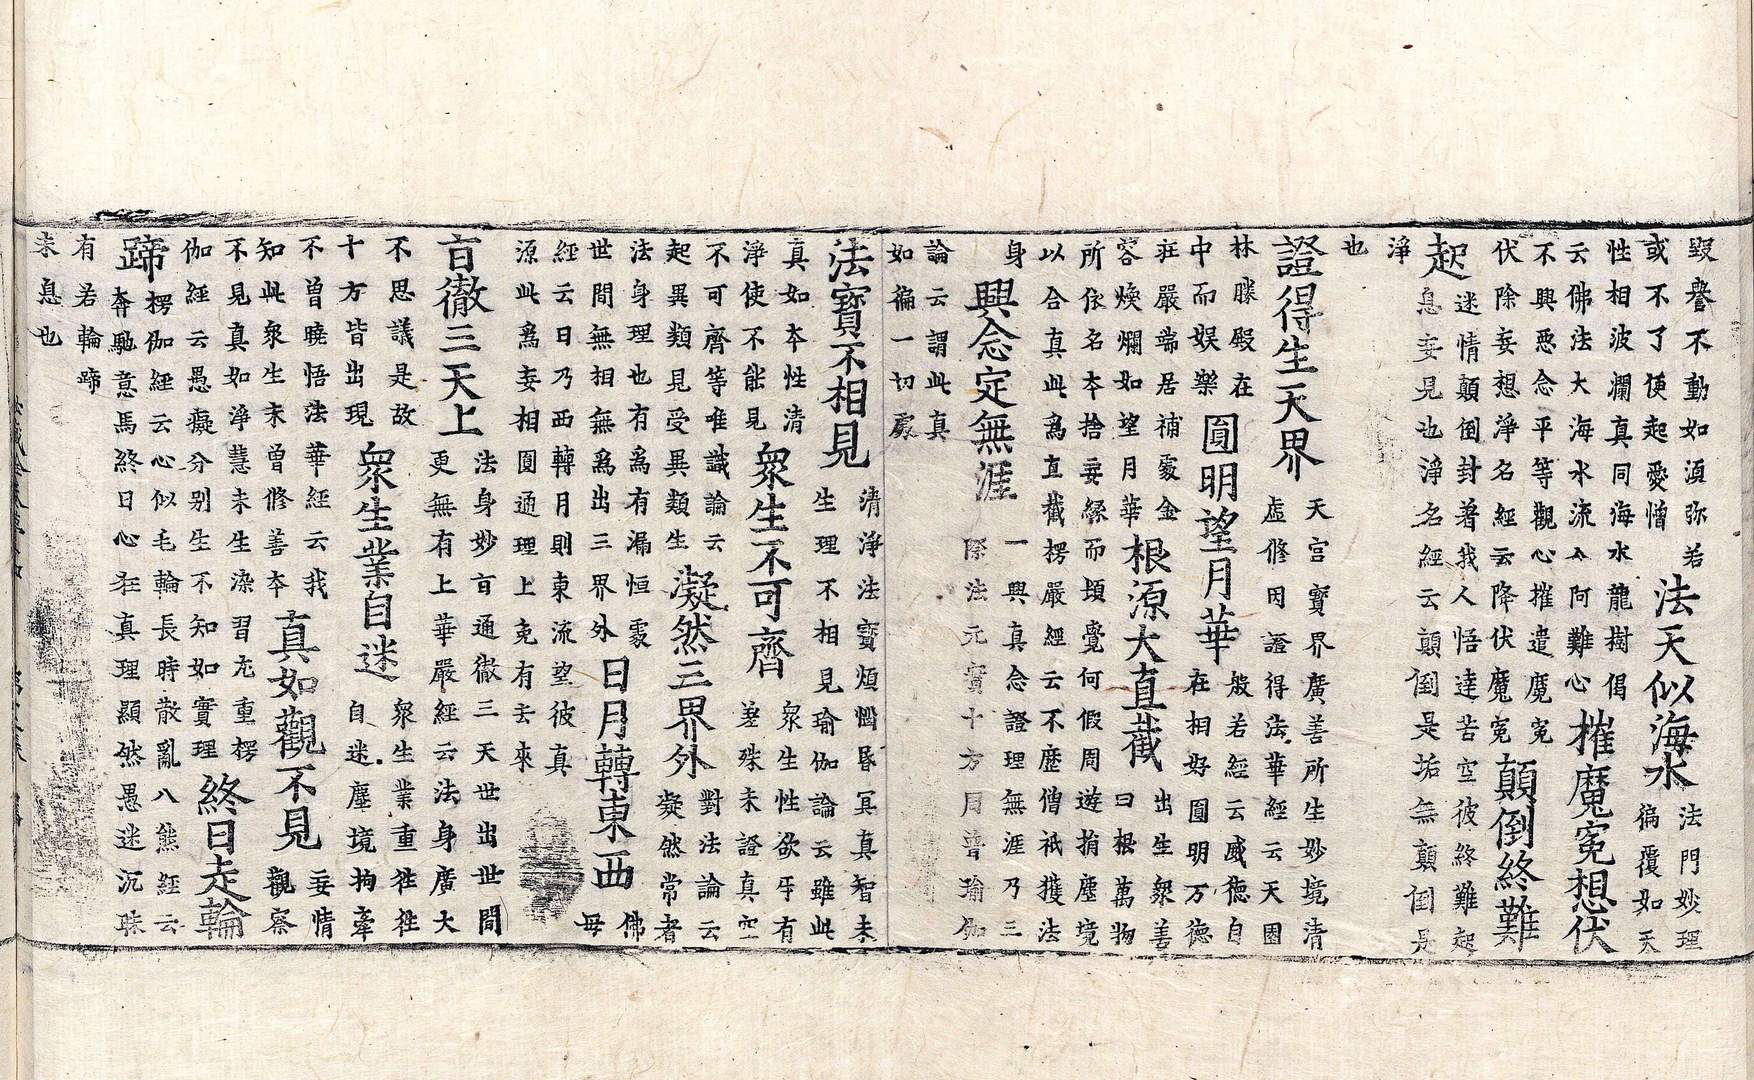 毀譽不動如湏弥若
或不了使起愛憎
法天似海水
法門妙理
徧覆如天
性相波瀾真同海水龍樹偈
云佛法大海水流入阿難心
摧魔寃想伏
不興惡念平等觀心摧遣魔寃
伏除妄想淨名經云降伏魔寃
顛倒終難
起
迷情顛倒封著我人悟達苦空彼終難起
息妄見也淨名經云顛倒是垢無顛倒是
淨
也
證得生天界
天宫寳界廣善所生妙境清
虚修因證得法華經云天園
林勝殿在
中而娯樂
圓明望月華
般若經云感德自
在相好圓明万德
莊嚴端居補處金
容煥爛如望月華
根源大直截
出生衆善
曰根萬物
所依名本捨妄縁而頓覺何假周遊捐塵境
以合真此爲直截楞嚴經云不歷僧祇獲法
身
興念定無涯
一興真念證理無涯乃三
際法元實十方同普瑜伽
論云謂此真
如徧一切處
法寳不相見
清淨法寳煩惱昏冥真智未
生理不相見瑜伽論云雖此
真如本性清
淨使不能見
衆生不可齊
衆生性欲乎有
差殊未證真空
不可齊等唯識論云
起異類見受異類生
凝然三界外
對法論云
凝然常者
法身理也有爲有漏恒處
世間無相無爲出三界外
日月轉東西
佛
毋
經云日乃西轉月則東流望彼真
源此爲妄相圓通理上免有去來
盲徹三天上
法身妙盲通徹三天世出世間
更無有上華嚴經云法身廣大
不思議是故
十方皆出現
衆生業自迷
衆生業重往往
自迷塵境拘牽
不曾曉悟法華經云我
知此衆生未曾修善本
真如觀不見
妄情
觀察
不見真如淨慧未生染習充重楞
伽經云愚癡分别生不知如實理
終日走輪
蹄
楞伽經云心似毛輪長時散亂八熊經云
奔馳意馬終日心狂真理顯然愚迷沉珠
有若輪蹄
未息也